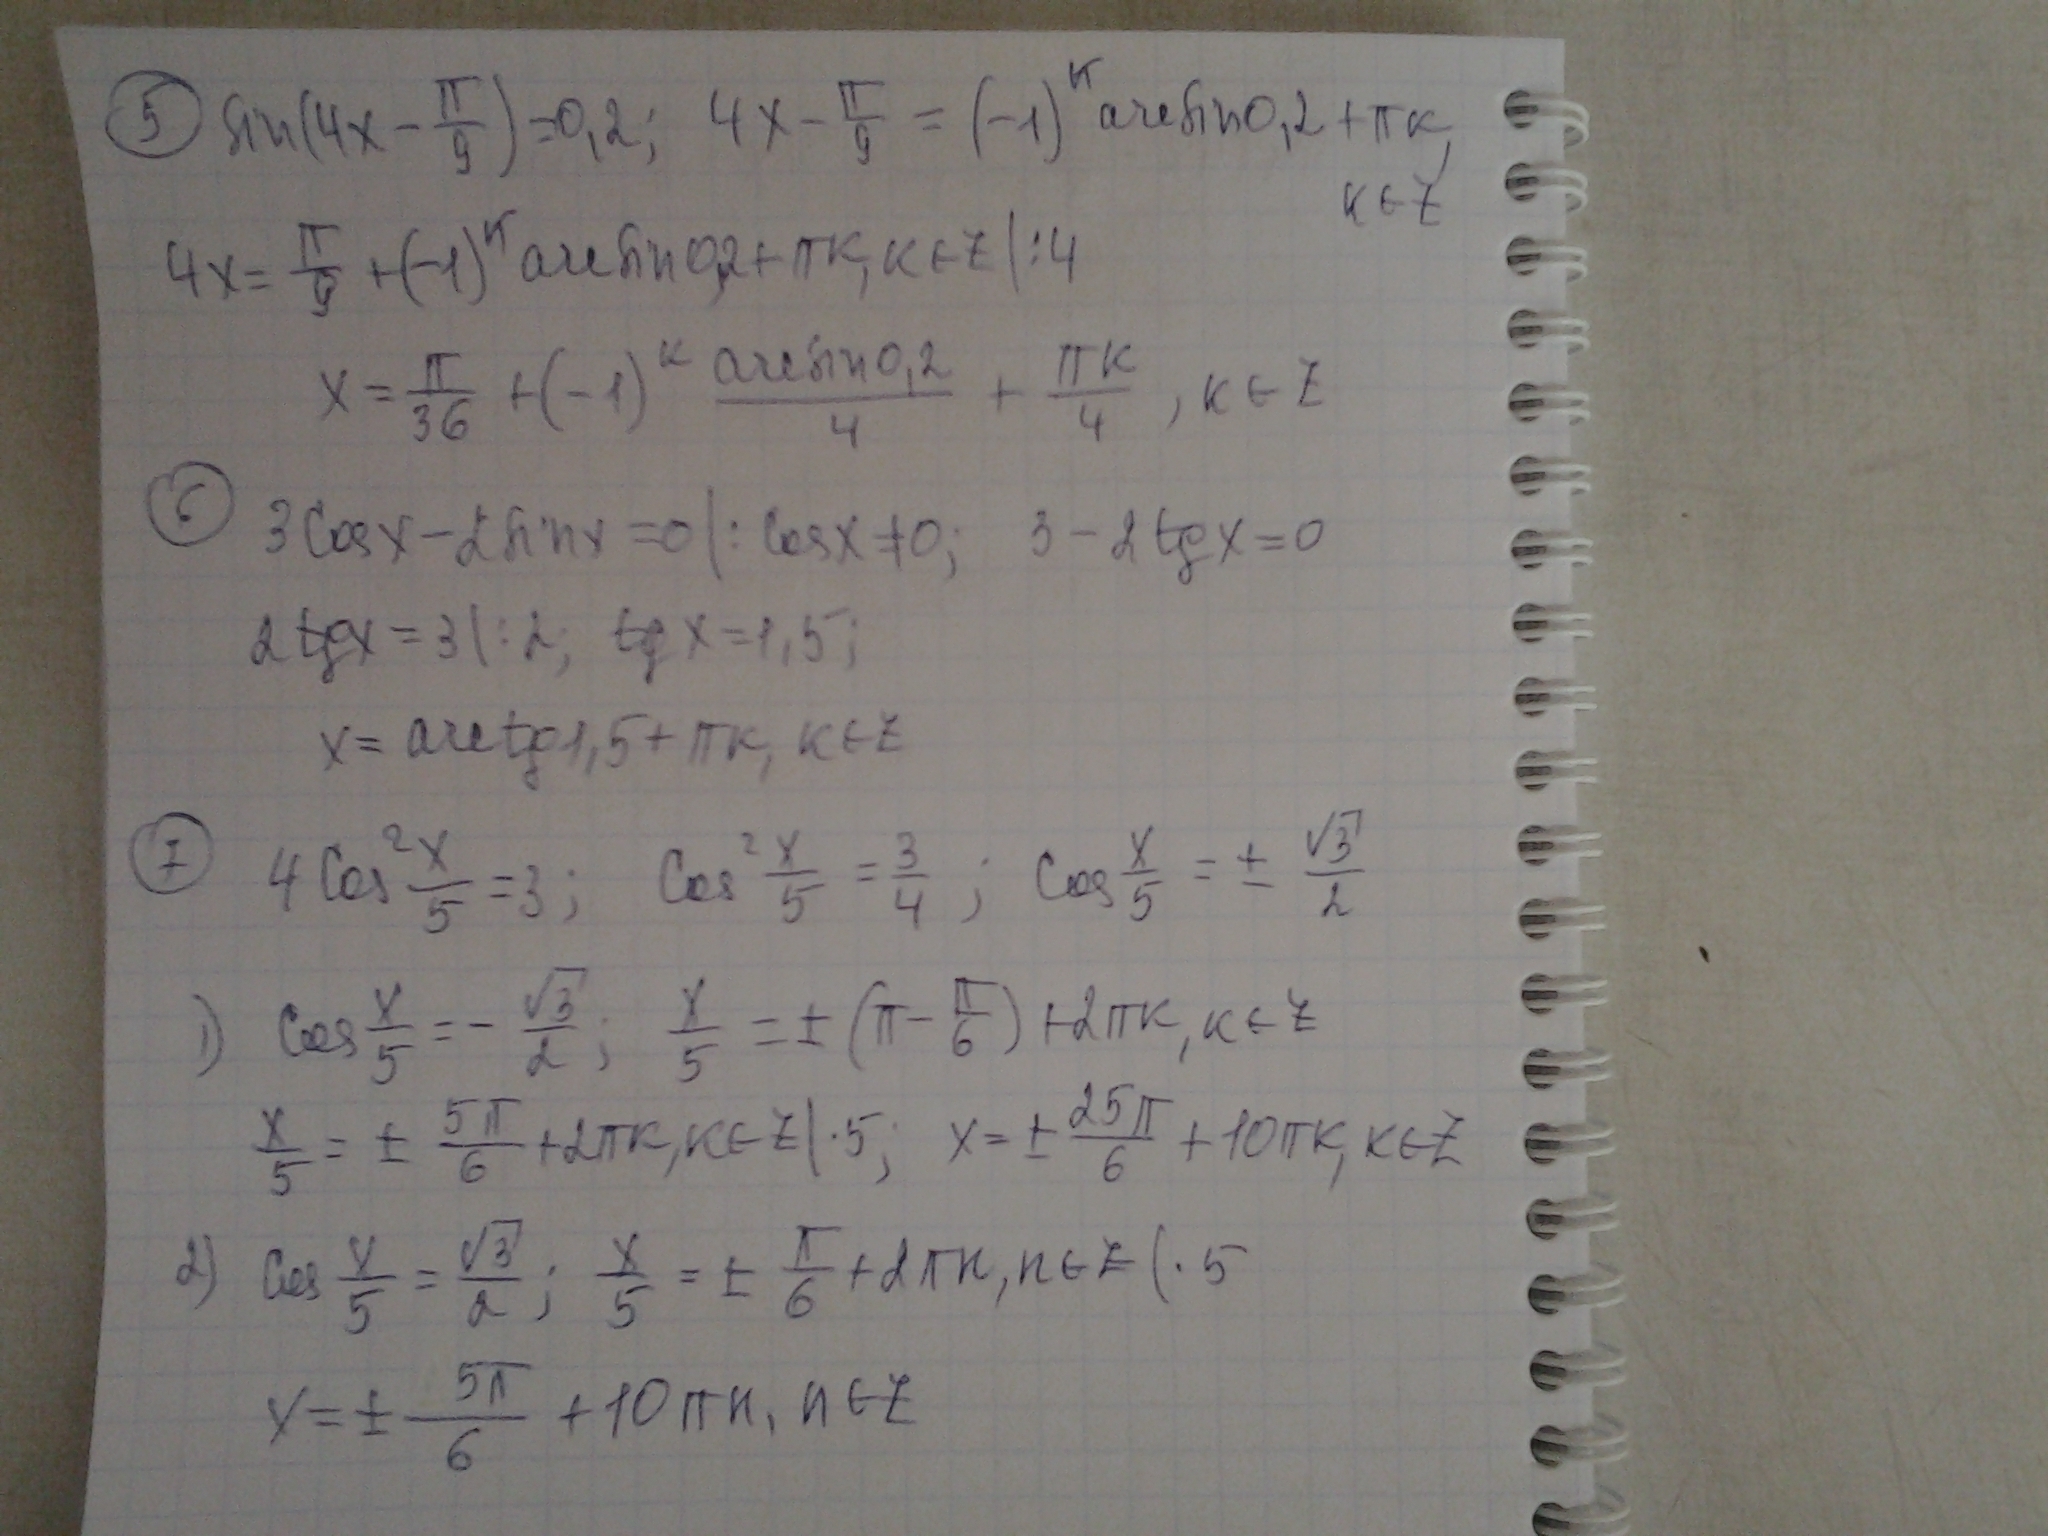 5 sin(4x - π/9) = 0,2; 4x - π/9 = (-1)^к arcsin 0,2 + πк,
к ∈ Z
4x = π/9 + (-1)^к arcsin 0,2 + πк, к ∈ Z |:4
x = π/36 + (-1)^к arcsin 0,2/4 + πк/4, к ∈ Z
6 3cos x - 2 sin x = 0 |: cos x ≠ 0; 3 - 2 tg x = 0
2 tg x = 3 |:2; tg x = 1,5;
x = arctg 1,5 + πк, к ∈ Z
7 4 cos² x/5 = 3; cos² x/5 = 3/4; cos x/5 = ± √3/2
1) cos x/5 = - √3/2; x/5 = ± (π - π/6) + 2πк, к ∈ Z
x/5 = ± 5π/6 + 2πк, к ∈ Z |·5; x = ± 25π/6 + 10πк, к ∈ Z
2) cos x/5 = √3/2; x/5 = ± π/6 + 2πn, n ∈ Z |·5
x = ± 5π/6 + 10πn, n ∈ Z